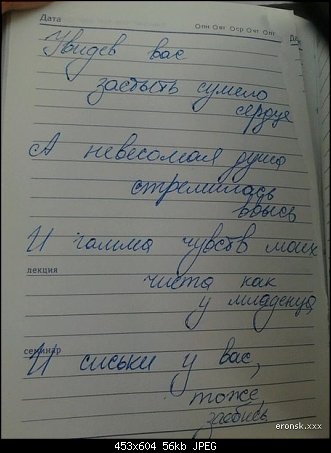 Дата
Опн Овт Оср Очт Опт
Увидев вас
застыть сумело
сердце
А невесомая душа
стремилась
ввысь
И гамма чувств моих
лекция
чиста как
у младенца,
семинар
И сиськи у вас,
тоже,
заебись
eronsk.xxx
453x604 56kb JPEG